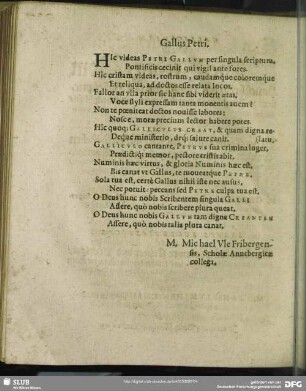 Gallus Petri.
HIc videas PETRI GALLVM per singula scriptum,
Pontificis cecinit qui vigil ante fores.
HIc cristam videas, rostrum, caudamque coloremque
Et reliqua, ad doctos esse relata locos.
Fallor an ulla prior sic hanc sibi viderit ætas,
Voce styli expressam tanta monentis avem?
Non te pœniteat doctos novisse labores:
Nosce, moræ precium lector habere potes.
HIc quoq; GALLICVLVS CREAT, & quam digna re-
Deque ministerio, deq; salute canit.
GALLICVLO cantante, PETRVS sua crimina luget,
Prædictiq; memor, pectore tristis abit.
Numinis hæc virtus, & gloria Numinis hæc est,
Bis canat ut Gallus, te moveatque PETRE,
Sola tua est, certè Gallus nihil iste nec ausus,
Nec potuit: peccans sed PETRA culpa tua est.
O Deus hunc nobis Scribentem singula GALLI
Assere, quò nobis scribere plura queat.
O Deus hunc nobis GALLVM tam digne CREANTEM
Assere, quò nobis talia plura canat.
M. Michael Vle Fribergen-
sis, Scholæ Annebergiæ
collega.
SLUB
Wir führen Wissen.
gefördert von der
Deutschen Forschungsgemeinschaft
DFG